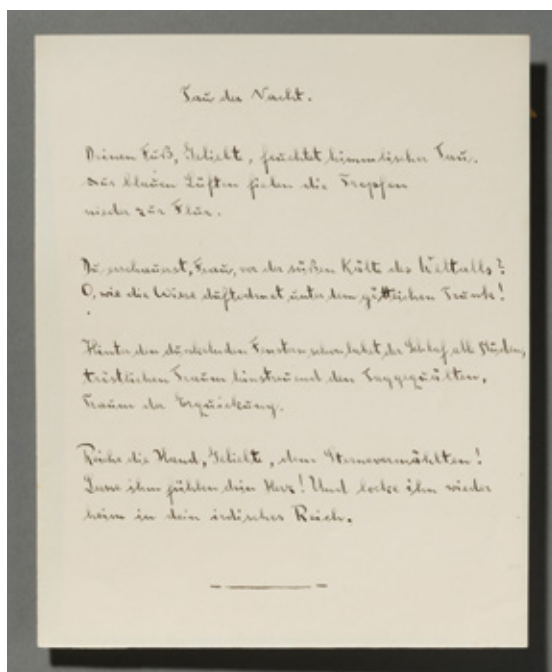 Tau der Nacht.
Deinen Fuß, Geliebte, feuchtet himmlischer Tau.
Aus blauen Lüften fielen die Tropfen
nieder zur Flur.
Du erschauerst, Frau, vor der süßen Kälte des Weltalls?
O, wie die Wiese duftend atmet unter dem göttlichen Trunk!
Hinter den dunkelnden Fenstern schon labet der Schlaf alle Müden,
tröstlichen Traum hinstreuend den Taggequälten,
Traum der Erquickung.
Reiche die Hand, Geliebte, dem Sternevermählten!
Lasse ihn fühlen dein Herz! Und locke ihn wieder
heim in dein irdisches Reich.